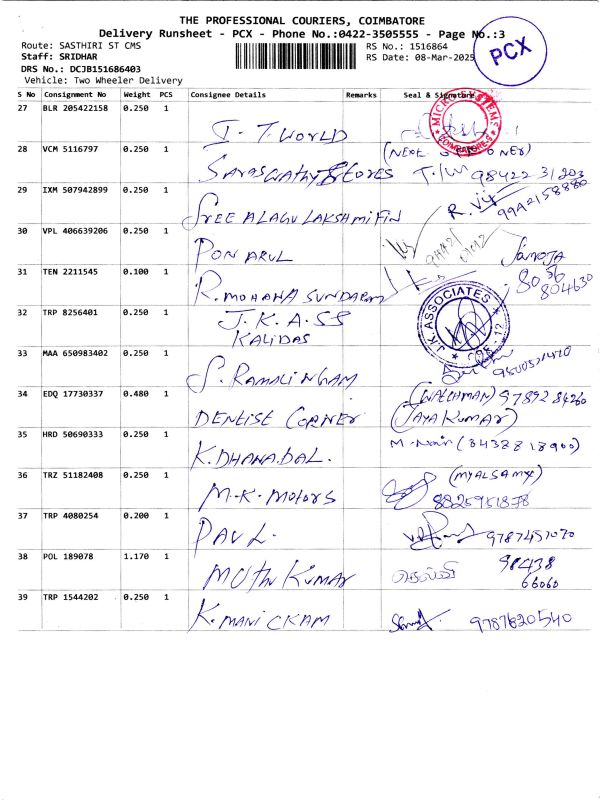 THE PROFESSIONAL COURIERS, COIMBATORE
Delivery Runsheet - PCX - Phone No.:0422-3505555 - Page No.:3
PCX
Route: SASTHIRI ST CMS
RS No.: 1516864
Staff: SRIDHAR
RS Date: 08-Mar-2025
DRS No.: DCJB151686403
Vehicle: Two Wheeler Delivery
S No Consignment No Weight PCS Consignee Details Remarks Seal & Signature
27 BLR 205422158 0.250 1
I-T.WORLD
MICRO SYSTEMS COIMBATORE
28 VCM 5116797 0.250 1
SARASWATHY STORES
98422 31203
29 IXM 507942899 0.250 1
SREE ALAGU LAKSHMI FIN
R. Vij
30 VPL 406639206 0.250 1
PON ARUL
31 TEN 2211545 0.100 1
R. MOHANA SUNDARAM
8056
804630
32 TRP 8256401 0.250 1
J.K.A.SS
KALIDAS
J.K. ASSOCIATES
33 MAA 650983402 0.250 1
S. RAMALINGAM
34 EDQ 17730337 0.480 1
DENTIST CORNER
(WATCHMAN) 97892 84260
(JAYA KUMAR)
35 HRD 50690333 0.250 1
K. DHANABAL.
36 TRZ 51182408 0.250 1
M-K-Motors
(MYALSAMY)
37 TRP 4080254 0.200 1
PAUL.
9787451070
38 POL 189078 1.170 1
MUTHU KUMAR
98438
66060
39 TRP 1544202 0.250 1
K. MANICKAM
9787620540